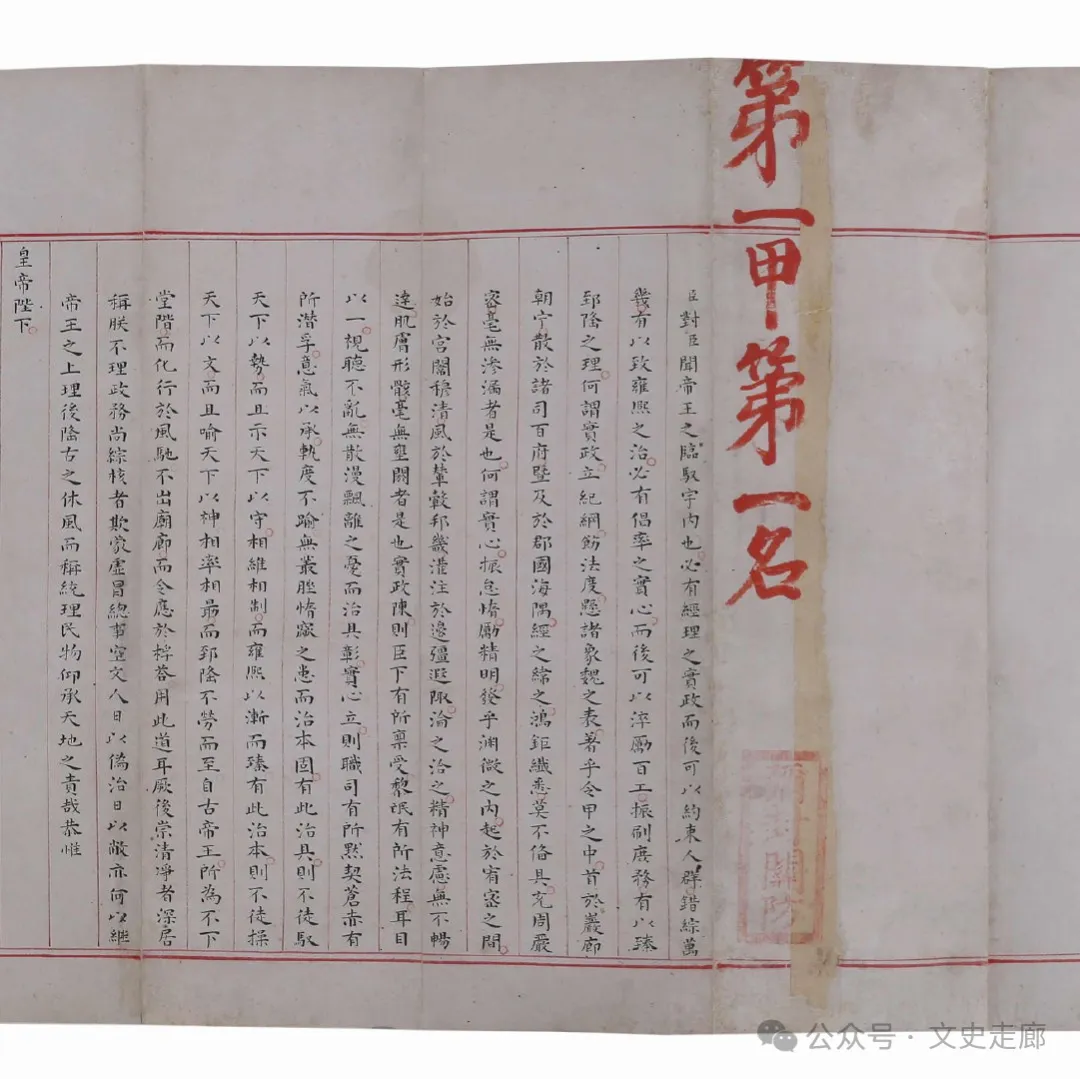 第一甲第一名
臣對臣聞帝王之臨馭宇內也必有經理之實政而後可以約束人群錯綜萬
幾有以致雍熙之治必有倡率之實心而後可以淬勵百工振刷庶務有以臻
郅隆之理何謂實政立紀綱飭法度懸諸象魏之表著乎令甲之中首於巖廊
朝宁散於諸司百府暨及於郡國海隅經之緯之鴻鉅纖悉莫不俻具充周嚴
密毫無滲漏者是也何謂實心振怠惰勵精明發乎淵微之內起於宥密之間
始於宮闈穆清風於輦轂邦畿灌注於邊疆遐陬淪之洽之精神意慮無不暢
達肌膚形骸毫無壅閼者是也實政陳則臣下有所稟受黎氓有所法程耳目
以一視聽不亂無散漫飄離之憂而治具彰實心立則職司有所默契蒼赤有
所潛孚意氣以承軌度不踰無叢脞惰窳之患而治本固有此治具則不徒馭
天下以勢而且示天下以守相維相制而雍熙以漸而臻有此治本則不徒操
天下以文而且喻天下以神相率相最而郅隆不勞而至自古帝王所為不下
堂階而化行於風馳不出廟廊而令應於桴答用此道耳厥後崇清凈者深居
稱朕不理政務尚綜核者欺蒙虛冒總事空文人日以偽治日以敝亦何以繼
帝王之上理後隆古之休風而稱統理民物仰承天地之責哉恭惟
皇帝陛下
彌封關防
公众号·文史走廊